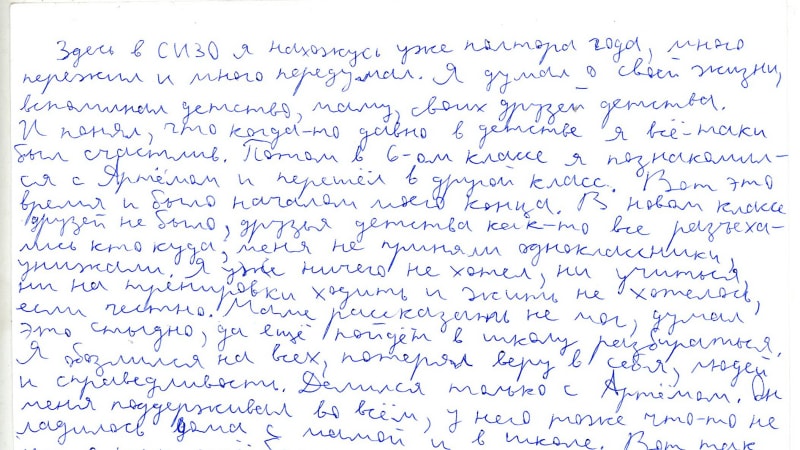 Здесь в СИЗО я нахожусь уже полтора года, много
пережил и много передумал. Я думал о своей жизни,
вспоминал детство, маму, своих друзей детства.
И понял, что когда-то давно в детстве я всё-таки
был счастлив. Потом в 6-ом классе я познакомил-
ся с Артёмом и перешёл в другой класс. Вот это
время и было началом моего конца. В новом классе
друзей не было, друзья детства как-то все разъеха-
лись кто куда, меня не приняли одноклассники,
унижали. Я уже ничего не хотел, ни учиться,
ни на тренировки ходить и жить не хотелось,
если честно. Маме рассказать не мог, думал,
это стыдно, да ещё пойдёт в школу разбираться.
Я обозлился на всех, потерял веру в себя, людей
и справедливости. Делился только с Артёмом. Он
меня поддерживал во всём, у него тоже что-то не
ладилось дома с мамой и в школе. Вот так